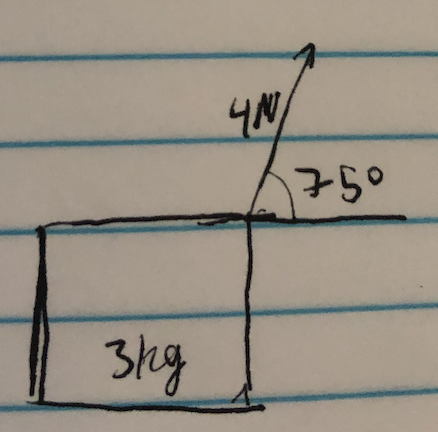 4N
75°
3kg